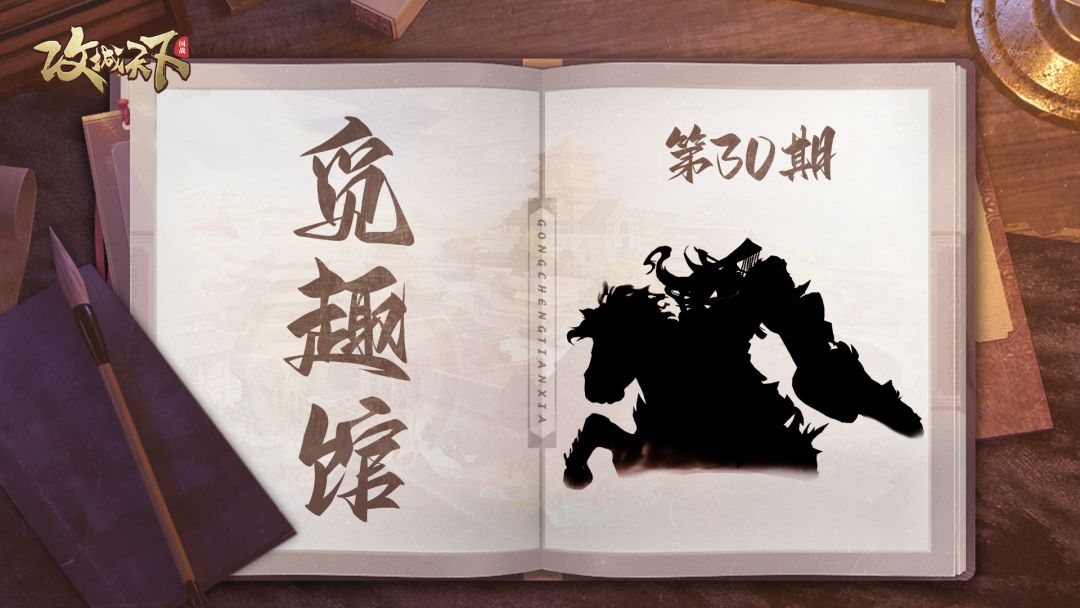 攻城天下
国战
觅趣馆
GONGCHENGTIANXIA
第30期